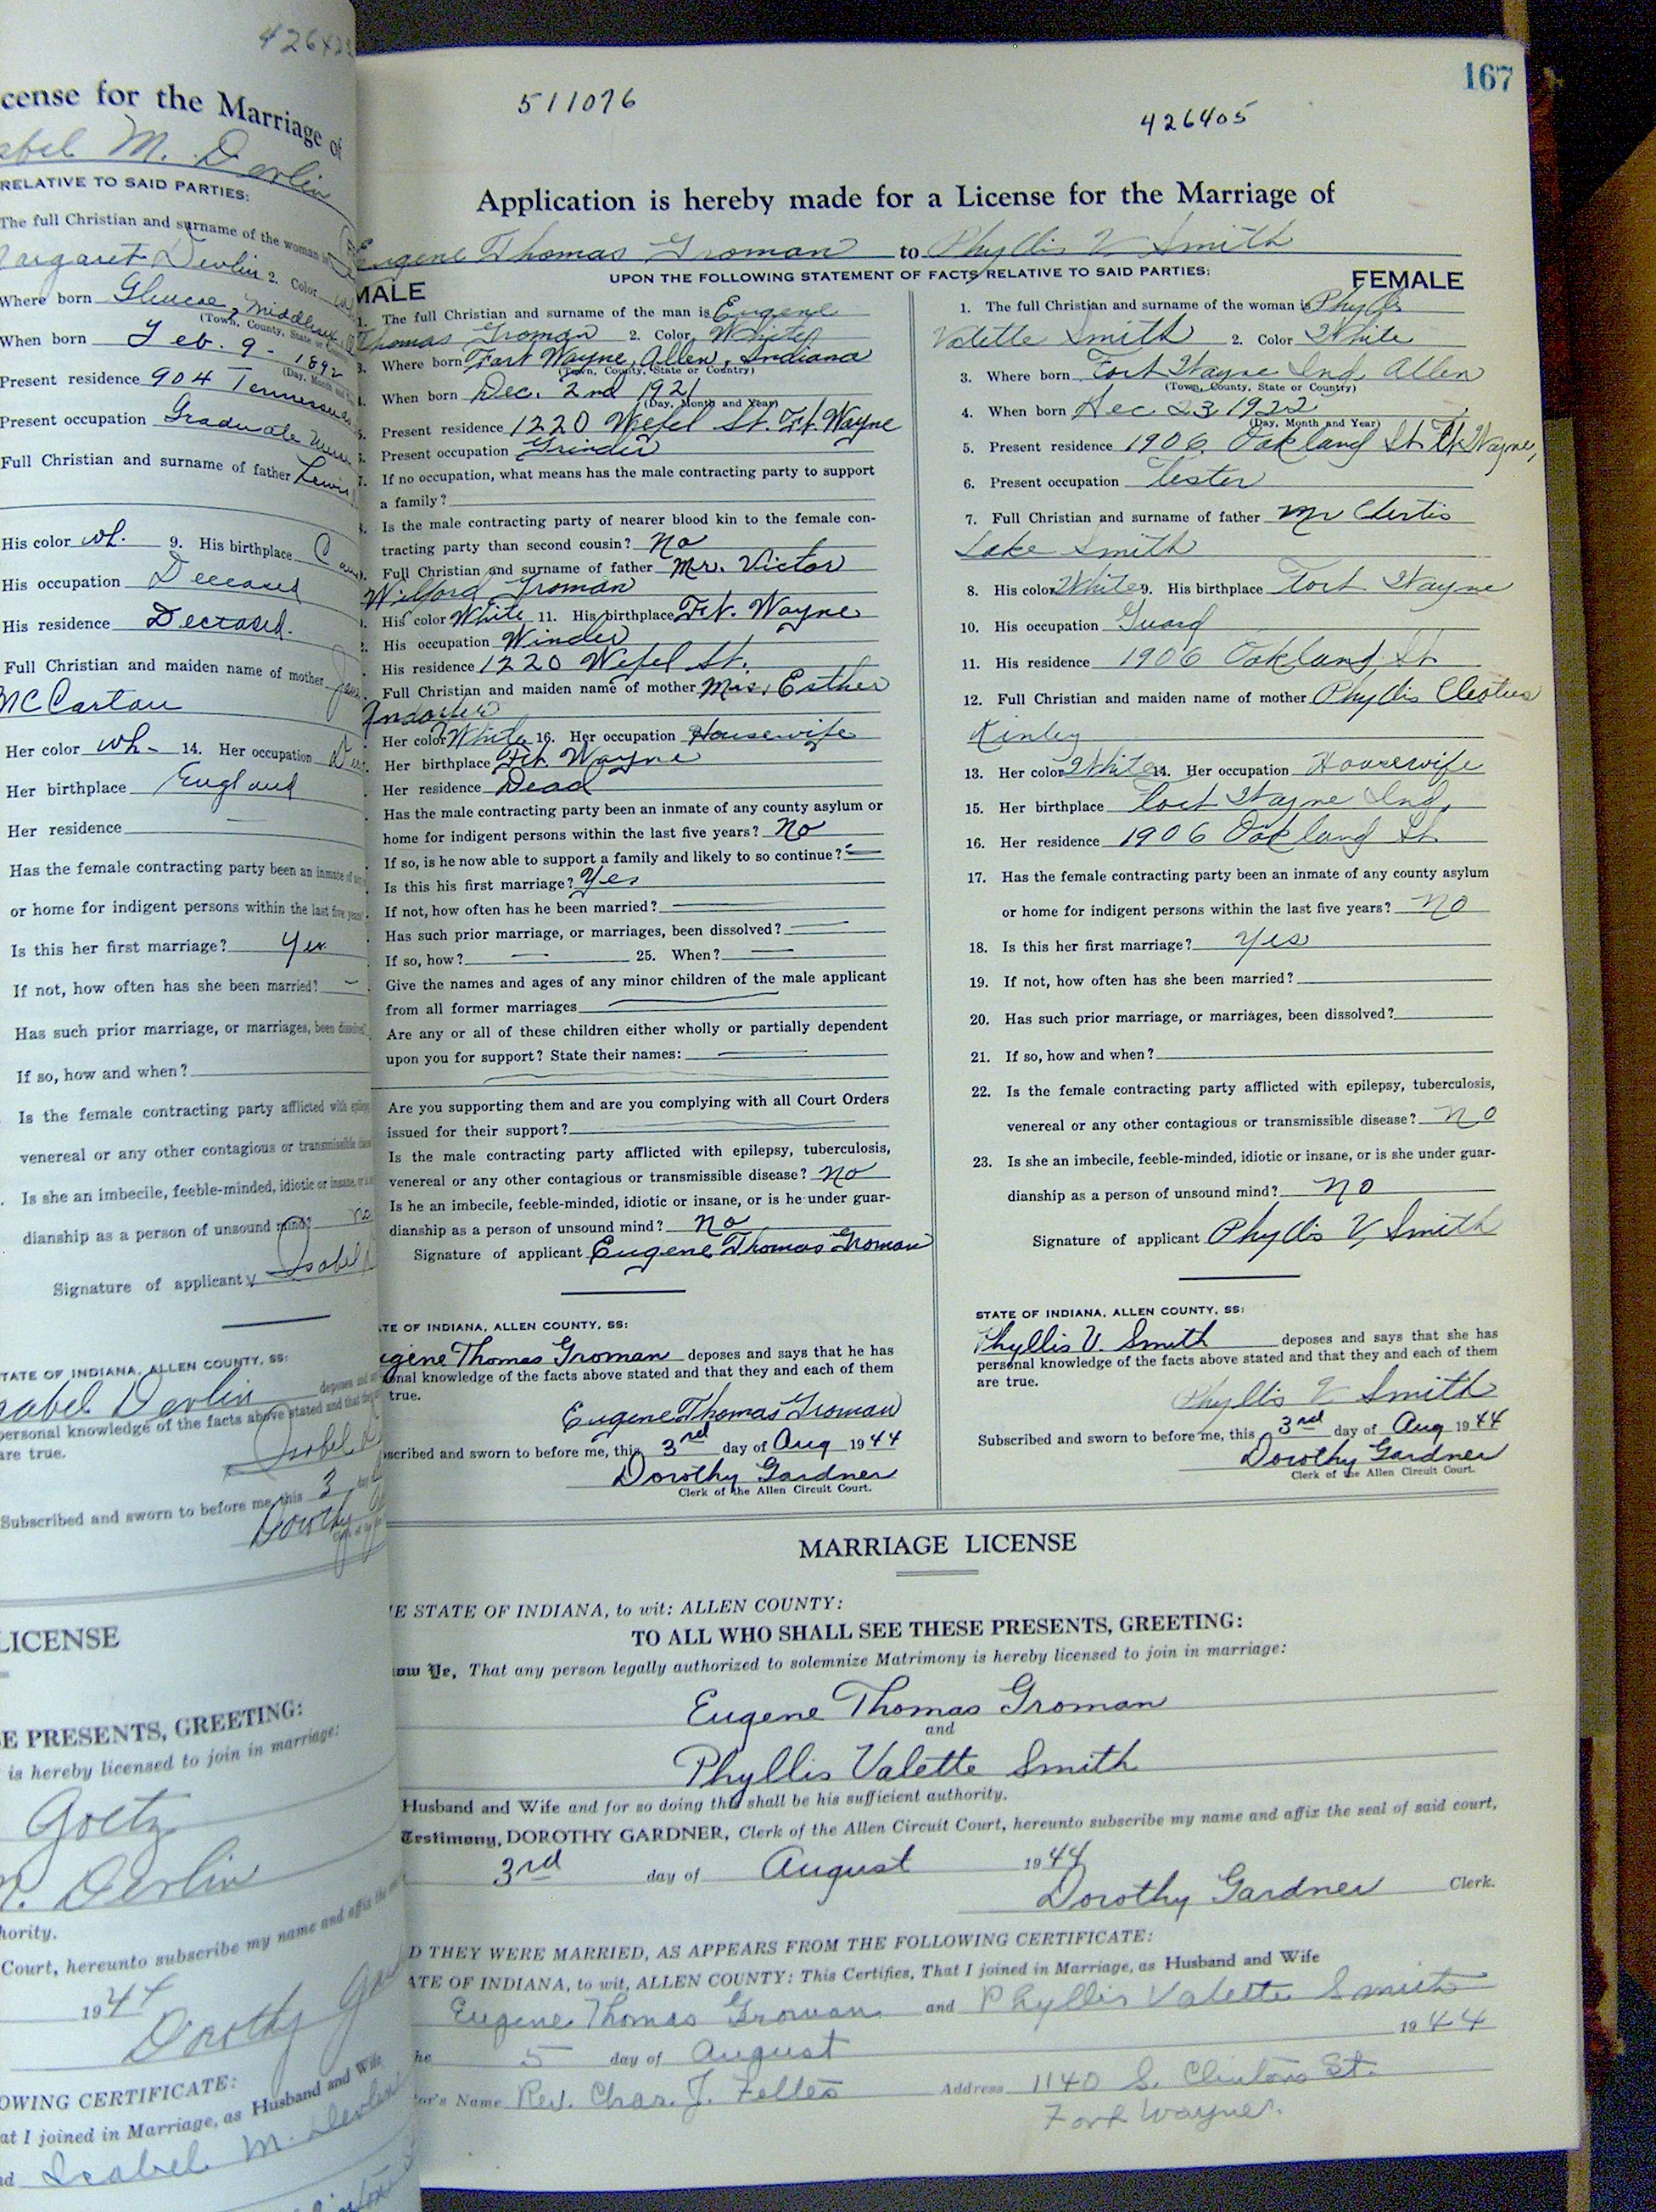 426423
cense for the Marriage of
abel M. Devlin
RELATIVE TO SAID PARTIES:
The full Christian and surname of the woman is
Margaret Devlin 2. Color
Where born Glencoe, Middlesex,
(Town, County, State or Country)
When born Feb. 9 - 1892
(Day, Month and
Present residence 904 Tennessee
Present occupation Graduate Nurse
Full Christian and surname of father Lewis
His color wh. 9. His birthplace
His occupation Deceased
His residence Deceased.
Full Christian and maiden name of mother
McCartan
Her color wh- 14. Her occupation
Her birthplace England
Her residence —
Has the female contracting party been an inmate of any
or home for indigent persons within the last five years?
Is this her first marriage? Yes
If not, how often has she been married? -
Has such prior marriage, or marriages, been dissolved?
If so, how and when?
Is the female contracting party afflicted with epilepsy
venereal or any other contagious or transmissible disease
Is she an imbecile, feeble-minded, idiotic or insane, or is
dianship as a person of unsound mind? no
Signature of applicant Isabel
STATE OF INDIANA, ALLEN COUNTY, SS:
Isabel Devlin deposes and
personal knowledge of the facts above stated and that they
are true.
Isabel
Subscribed and sworn to before me, this 3 day
Dorothy
LICENSE
SE PRESENTS, GREETING:
is hereby licensed to join in marriage:
Goetz
M. Devlin
hority.
Court, hereunto subscribe my name and affix the
1944
Dorothy
OWING CERTIFICATE:
at I joined in Marriage, as Husband and Wife
nd Isabel M. Devlin
167
511076
426405
Application is hereby made for a License for the Marriage of
Eugene Thomas Groman to Phyllis V Smith
UPON THE FOLLOWING STATEMENT OF FACTS RELATIVE TO SAID PARTIES:
MALE
1. The full Christian and surname of the man is Eugene
Thomas Groman 2. Color White
3. Where born Fort Wayne, Allen, Indiana
(Town, County, State or Country)
When born Dec. 2nd 1921
(Day, Month and Year)
5. Present residence 1220 Wefel St. Ft. Wayne
Present occupation Grinder
7. If no occupation, what means has the male contracting party to support
a family?
Is the male contracting party of nearer blood kin to the female con-
tracting party than second cousin? No
Full Christian and surname of father Mr. Victor
Wilford Groman
His color White 11. His birthplace Ft. Wayne
His occupation Winder
His residence 1220 Wefel St.
Full Christian and maiden name of mother Mrs. Esther
Her color White 16. Her occupation Housewife
Her birthplace Ft. Wayne
Her residence Dead
Has the male contracting party been an inmate of any county asylum or
home for indigent persons within the last five years? No
If so, is he now able to support a family and likely to so continue? —
Is this his first marriage? Yes
If not, how often has he been married? —
Has such prior marriage, or marriages, been dissolved? —
If so, how? — 25. When? —
Give the names and ages of any minor children of the male applicant
from all former marriages
Are any or all of these children either wholly or partially dependent
upon you for support? State their names: —
Are you supporting them and are you complying with all Court Orders
issued for their support?
Is the male contracting party afflicted with epilepsy, tuberculosis,
venereal or any other contagious or transmissible disease? No
Is he an imbecile, feeble-minded, idiotic or insane, or is he under guar-
dianship as a person of unsound mind? No
Signature of applicant Eugene Thomas Groman
TE OF INDIANA, ALLEN COUNTY, SS:
Eugene Thomas Groman deposes and says that he has
onal knowledge of the facts above stated and that they and each of them
true.
Eugene Thomas Groman
scribed and sworn to before me, this 3rd day of Aug 1944
Dorothy Gardner
Clerk of the Allen Circuit Court.
FEMALE
1. The full Christian and surname of the woman is Phyllis
Valette Smith 2. Color White
3. Where born Fort Wayne Ind Allen
(Town, County, State or Country)
4. When born Dec 23 1922
(Day, Month and Year)
5. Present residence 1906 Oakland St Ft Wayne,
6. Present occupation Tester
7. Full Christian and surname of father Mr Clertis
Lake Smith
8. His color White 9. His birthplace Fort Wayne
10. His occupation Guard
11. His residence 1906 Oakland St
12. Full Christian and maiden name of mother Phyllis Cleotus
Kinley
13. Her color White 14. Her occupation Housewife
15. Her birthplace Fort Wayne Ind,
16. Her residence 1906 Oakland St
17. Has the female contracting party been an inmate of any county asylum
or home for indigent persons within the last five years? No
18. Is this her first marriage? Yes
19. If not, how often has she been married?
20. Has such prior marriage, or marriages, been dissolved?
21. If so, how and when?
22. Is the female contracting party afflicted with epilepsy, tuberculosis,
venereal or any other contagious or transmissible disease? No
23. Is she an imbecile, feeble-minded, idiotic or insane, or is she under guar-
dianship as a person of unsound mind? No
Signature of applicant Phyllis V. Smith
STATE OF INDIANA, ALLEN COUNTY, SS:
Phyllis V. Smith deposes and says that she has
personal knowledge of the facts above stated and that they and each of them
are true.
Phyllis V Smith
Subscribed and sworn to before me, this 3rd day of Aug 1944
Dorothy Gardner
Clerk of the Allen Circuit Court.
MARRIAGE LICENSE
E STATE OF INDIANA, to wit: ALLEN COUNTY:
TO ALL WHO SHALL SEE THESE PRESENTS, GREETING:
ow Ye, That any person legally authorized to solemnize Matrimony is hereby licensed to join in marriage:
Eugene Thomas Groman
and
Phyllis Valette Smith
Husband and Wife and for so doing this shall be his sufficient authority.
Testimony, DOROTHY GARDNER, Clerk of the Allen Circuit Court, hereunto subscribe my name and affix the seal of said court,
3rd day of August 1944
Dorothy Gardner Clerk.
D THEY WERE MARRIED, AS APPEARS FROM THE FOLLOWING CERTIFICATE:
ATE OF INDIANA, to wit, ALLEN COUNTY: This Certifies, That I joined in Marriage, as Husband and Wife
Eugene Thomas Groman and Phyllis Valette Smith
he 5 day of August 1944
or's Name Rev. Chas. J. Felles Address 1140 S. Clinton St.
Fort Wayne.